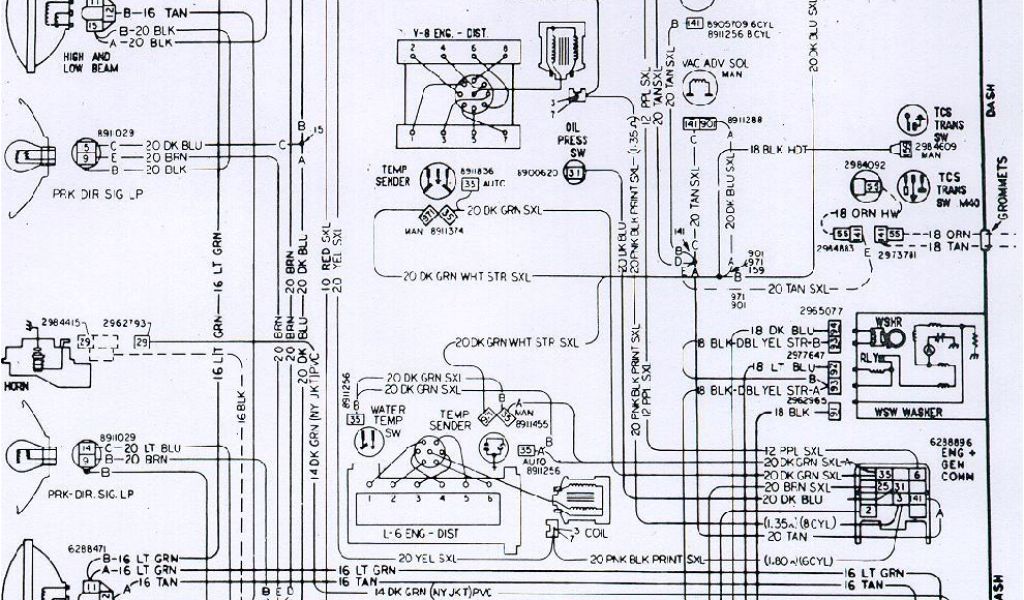 B-16 TAN
B-20 BLK
A-20 BLK
12
11
15
HIGH AND
LOW BEAM
8911029
5
9
C 20 DK BLU
E 20 BRN
B 20 BLK
PRK DIR SIG LP
B
15
C
A
V-8 ENG. - DIST.
2 4 6 8
1 3 5 7
3
7
OIL
PRESS
SW
8900620
31
TEMP
SENDER
8911836
35 AUTC
971 35
MAN 8911374
20 DK GRN SXL
20 DK GRN WHT STR SXL
B 141 8905709 6CYL
8911256 8CYL
VAC ADV SOL
MAN
141 901
8911288
C
A
12 PPL SXL
20 TAN SXL
20 TAN SXL
20 DK BLU SXL
20 DK BLU
20 PNK BLK PRINT SXL (1.35Ω)
20 TAN SXL
20 DK BLU SXL
18 BLK HOT
TCS
TRANS
SW
2984609
MAN
59
2984092
55
TCS
TRANS
SW M40
18 ORN HW
55
2984883
E
55
2973781
18 ORN
18 TAN
DASH
GROMMETS
141
B
D
C
E A
901
971
159
B
971
901
20 TAN SXL
16 LT GRN
16 LT GRN
20 BRN
20 BRN
20 BRN
20 DK BLU
20 DK BLU
10 RED SXL
20 YEL SXL
2984415
29
2962793
29
HORN
16 BLK
14 DK GRN (NY JKT)PVC
20 DK GRN WHT STR SXL
20 PNK BLK PRINT SXL
12 PPL SXL
20 DK GRN SXL
20 DK GRN SXL
8911256
B
35
WATER
TEMP
SW
TEMP
SENDER
B
A
35
MAN
8911455
35 A
B
AUTO
8911256
1 2 3 4 5 6
L-6 ENG - DIST
3
7
COIL
18 DK BLU
18 BLK-DBL YEL STR-B
2965077
94
93
2977647
18 LT BLU
B
92
93
18 BLK-DBL YEL STR-A
2962965
18 BLK
91
WSHR
RLY
WSW WASHER
8911029
14
9
C-20 LT BLU
B-20 BRN
B
PRK-DIR.SIG LP
12 PPL SXL
20 DK GRN SXL-A
20 DK GRN SXL
20 BRN SXL
20 DK BLU
(1.35Ω) (8CYL)
20 TAN
6288896
ENG +
GEN
COMM
35 6
25 31
3 41
2
A
20 YEL SXL
20 PNK BLK PRINT SXL
(1.80Ω)(6CYL)
6288471
B-16 LT GRN
A-16 LT GRN
16 TAN
11
A
16 LT GRN
16 TAN
14 DK GRN (NY JKT)PVC
B E D
16 LT GRN
16 TAN